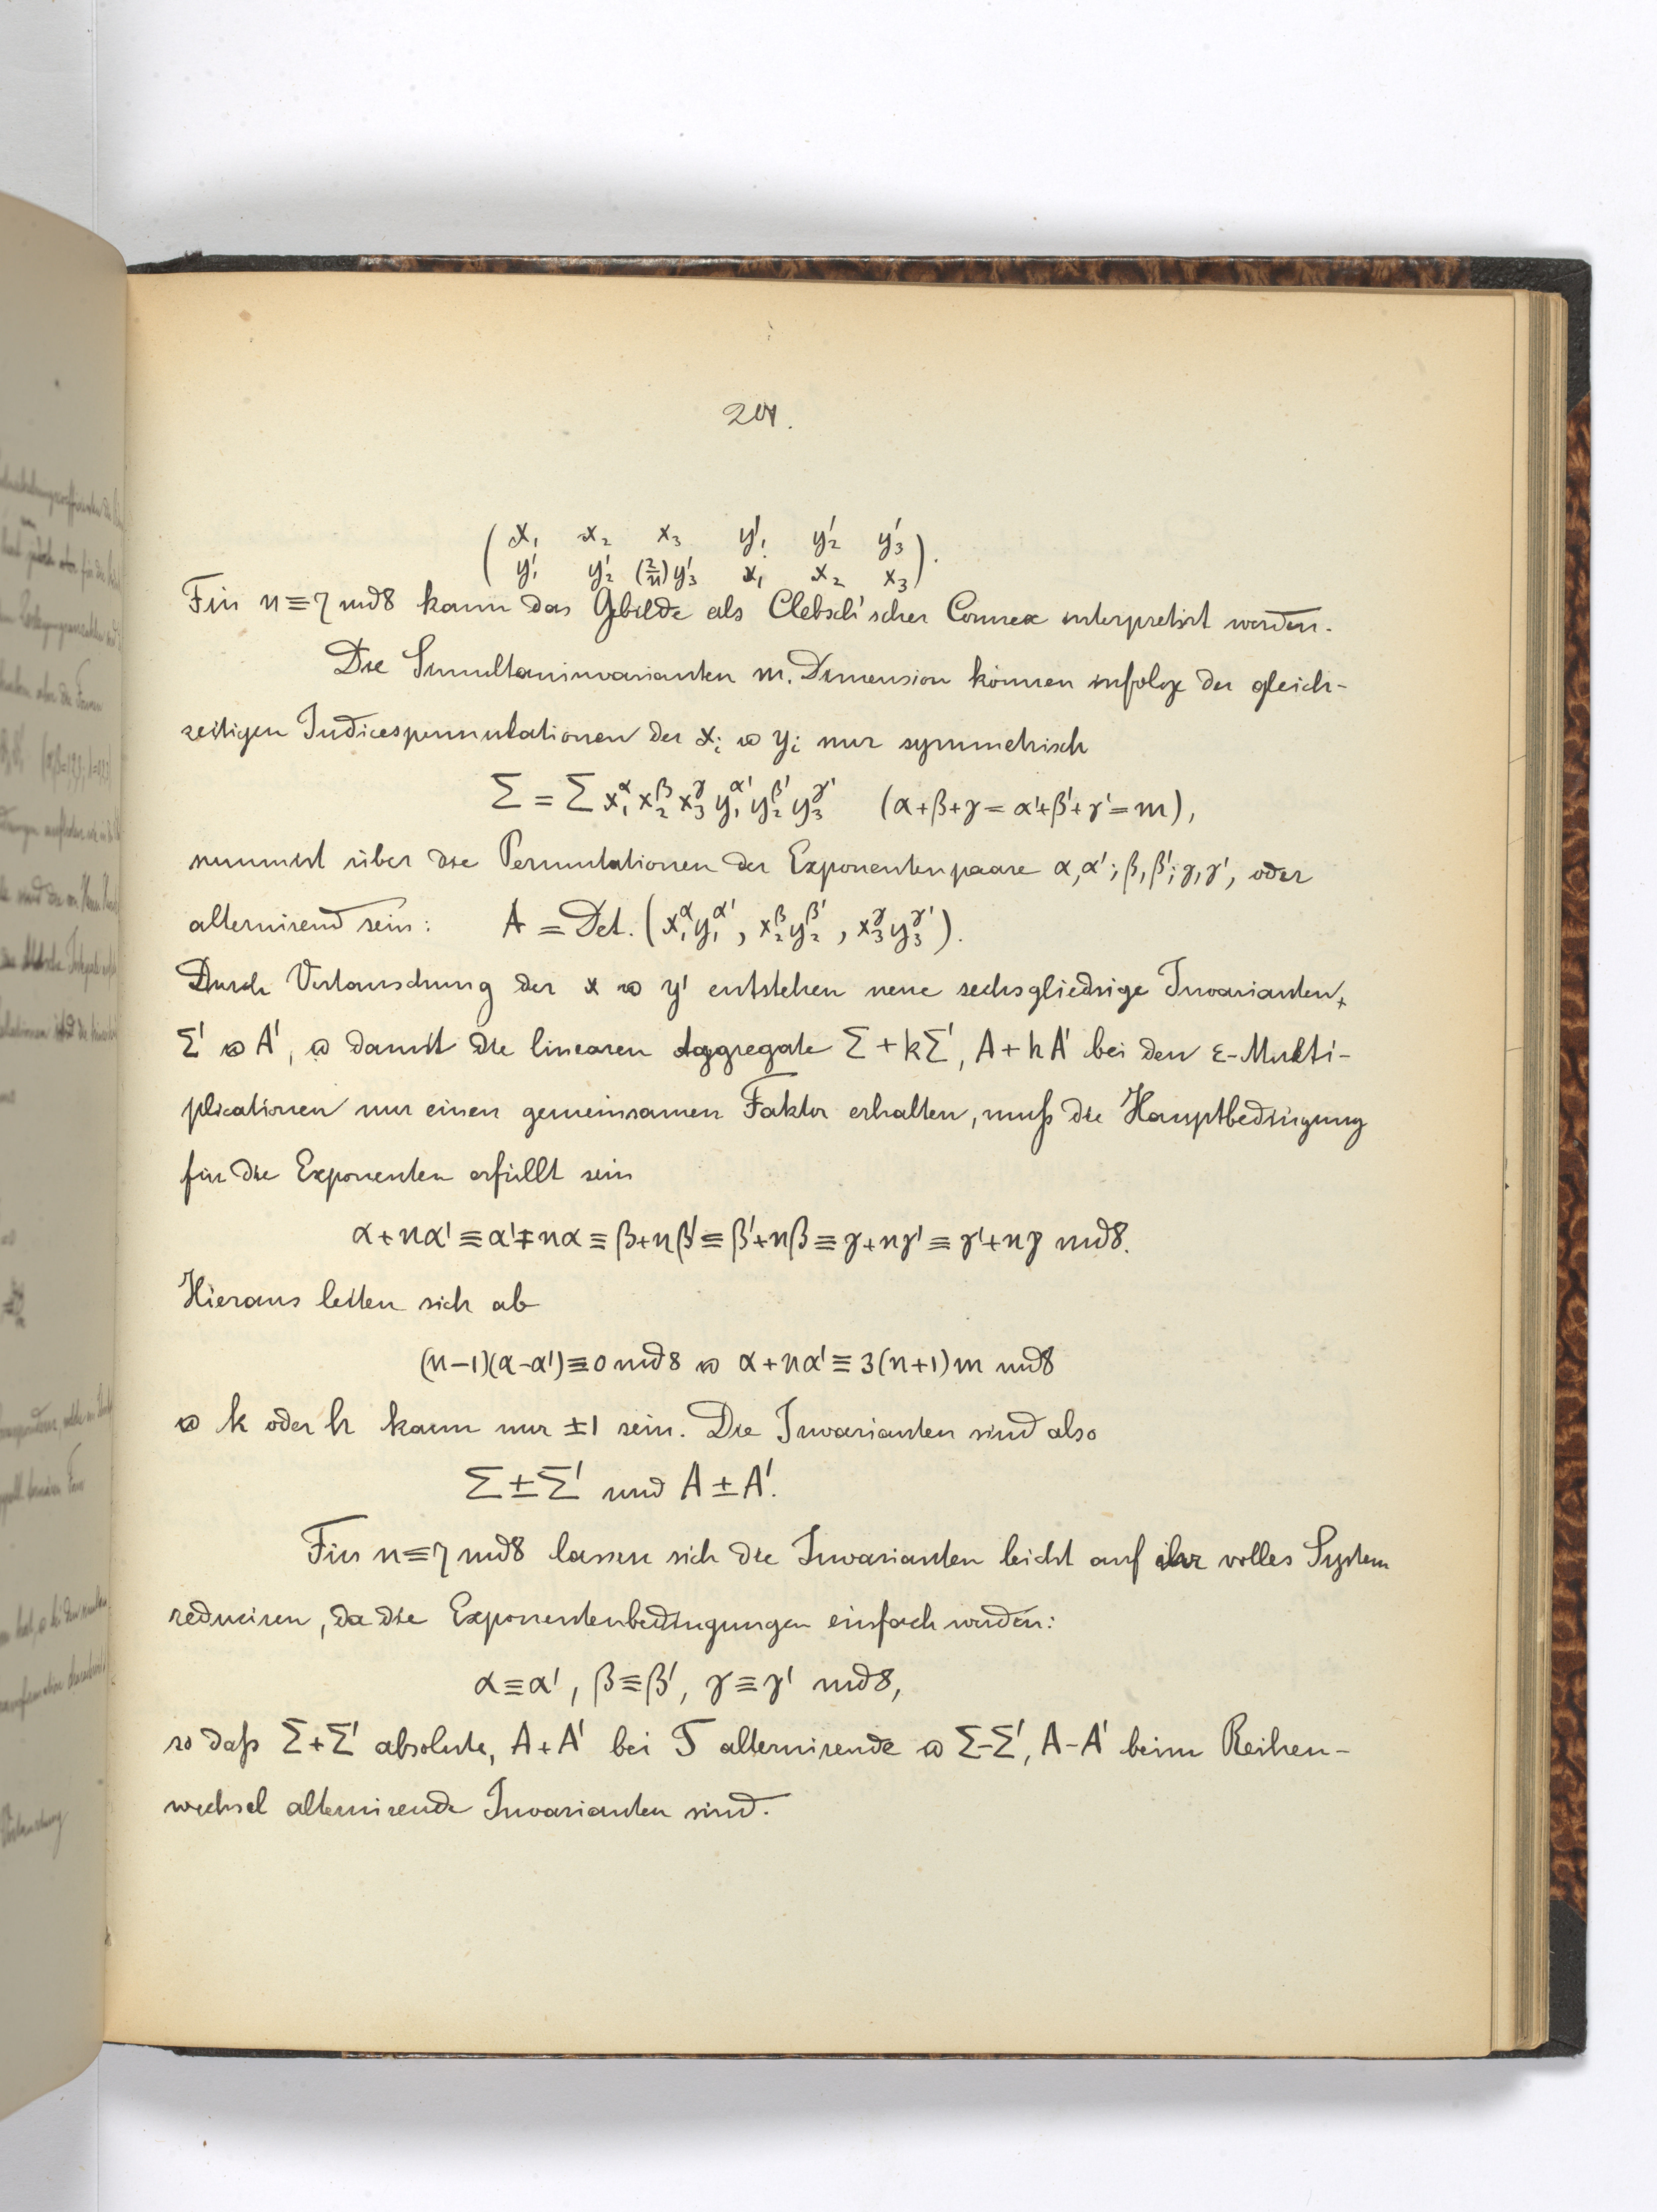 201.
( x₁ x₂ x₃ y'₁ y'₂ y'₃
y'₁ y'₂ (2/n)y'₃ x₁ x₂ x₃ ).
Für n≡7 md8 kann das Gebilde als Clebsch'scher Connex interpretirt werden.
Die Simultaninvarianten m. Dimension können infolge der gleich-
zeitigen Indicespermutationen der xᵢ & yᵢ nur symmetrisch
Σ = Σ x₁^α x₂^β x₃^γ y₁^α' y₂^β' y₃^γ' (α+β+γ = α'+β'+γ' = m),
summirt über die Permutationen der Exponentenpaare α,α'; β,β'; γ,γ', oder
alternirend sein: A = Det. (x₁^α y₁^α', x₂^β y₂^β', x₃^γ y₃^γ').
Durch Vertauschung der x & y' entstehen neue sechsgliedrige Invarianten,
Σ' & A', & damit die linearen Aggregate Σ + kΣ', A + hA' bei den ε-Multi-
plicationen nur einen gemeinsamen Faktor erhalten, muß die Hauptbedingung
für die Exponenten erfüllt sein
α+nα' ≡ α'+nα ≡ β+nβ' ≡ β'+nβ ≡ γ+nγ' ≡ γ'+nγ md8.
Hieraus leiten sich ab
(n-1)(α-α') ≡ 0 md8 & α+nα' ≡ 3(n+1)m md8
& k oder h kann nur ±1 sein. Die Invarianten sind also
Σ ± Σ' und A ± A'.
Für n≡7 md8 lassen sich die Invarianten leicht auf ihr volles System
reduciren, da die Exponentenbedingungen einfach werden:
α≡α', β≡β', γ≡γ' md8,
so daß Σ+Σ' absolute, A+A' bei T alternirende & Σ-Σ', A-A' beim Reihen-
wechsel alternirende Invarianten sind.